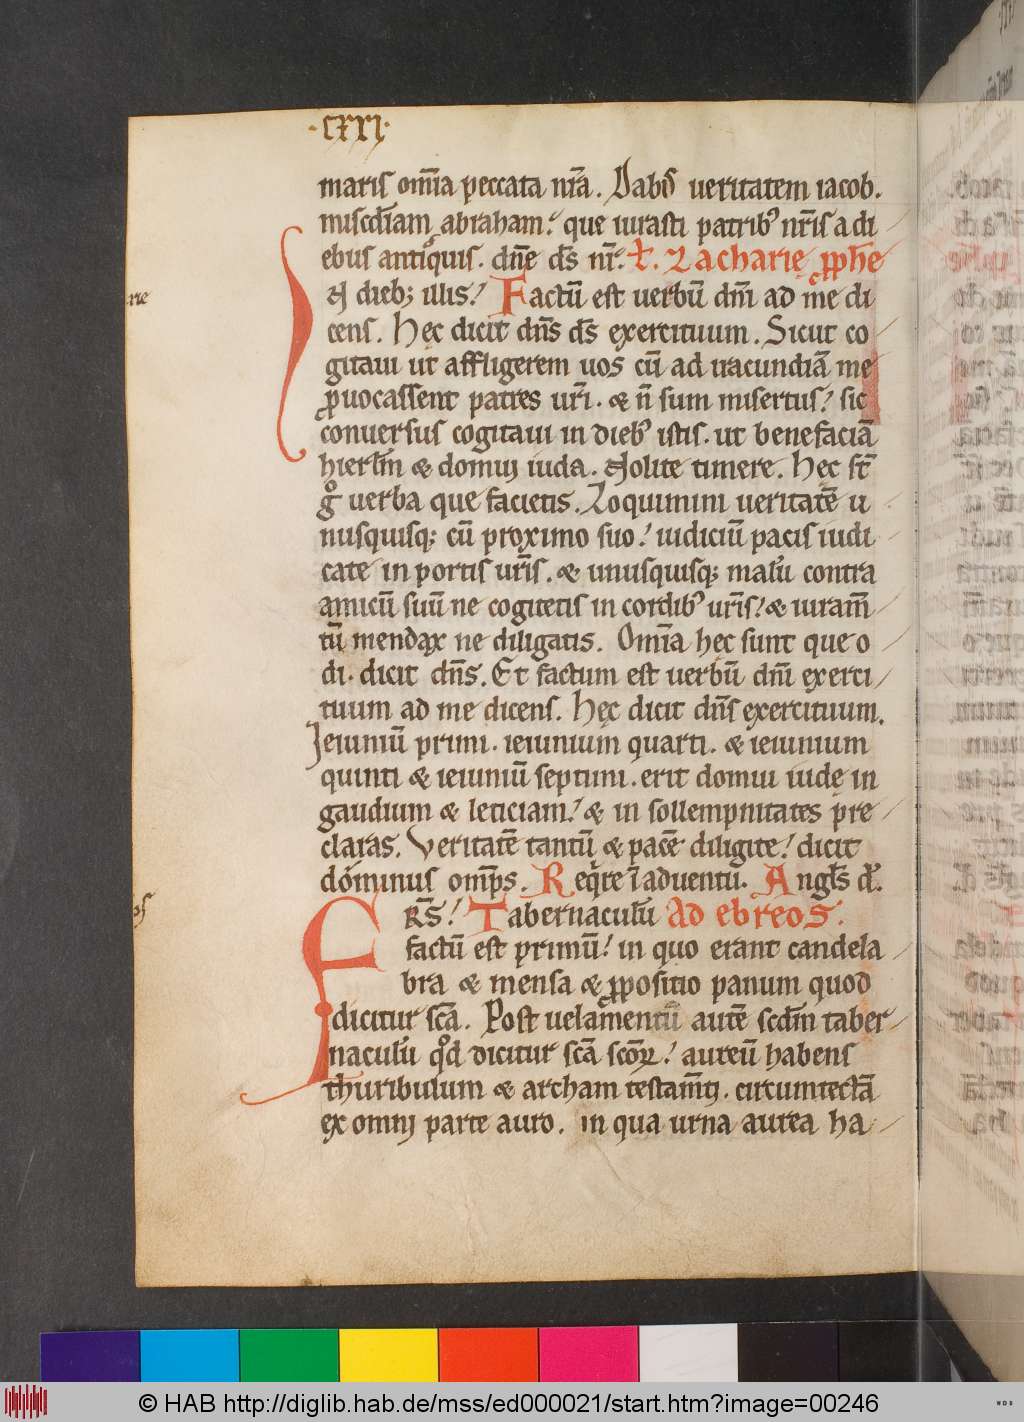 ·cxxi·
maris om̄ia peccata nr̄a. Dabis ueritatem iacob.
misc̄diam abraham! que iurasti patribꝰ nr̄is a di
ebus antiquis. dn̄e ds̄ nr̄. t̄. Zacharie ꝓph̄e
rie
In diebꝫ illis! Factū est uerbū dn̄i ad me di
cens. Hec dicit dn̄s ds̄ exercituum. Sicut co
gitaui ut affligerem uos cū ad iracundiā me
ꝓuocassent patres ur̄i. & n̄ sum misertus! sic
conuersus cogitaui in diebꝰ istis. ut benefaciā
hierl̄m & domui iuda. Nolite timere. Hec st̄
gͦ uerba que facietis. Loquimini ueritatē u
nusquisqꝫ cū proximo suo! iudiciū pacis iudi
cate in portis ur̄is. & unusquisqꝫ malū contra
amicū suū ne cogitetis in cordibꝰ ur̄is! & iuram̄
tū mendax ne diligatis. Om̄ia hec sunt que o
di. dicit dn̄s. Et factum est uerbū dn̄i exerci
tuum ad me dicens. Hec dicit dn̄s exercituum.
Ieiuniū primi. ieiunium quarti. & ieiunium
quinti & ieiuniū septimi. erit domui iude in
gaudium & leticiam! & in sollempnitates pre
claras. Veritatē tantū & pacē diligite! dicit
dominus omp̄s. Reqͥre ī aduentū. Angl̄s d.
Fr̄s! Tabernaculū Ad ebreos.
factū est primū! in quo erant candela
bra & mensa & ꝓpositio panum quod
dicitur sc̄a. Post uelamentū autē sc̄dm taber
naculū qͦd dicitur sc̄a sc̄oꝝ! aureū habens
thuribulum & archam testam̄ti. circumtectā
ex omni parte auro. in qua urna aurea ha
© HAB http://diglib.hab.de/mss/ed000021/start.htm?image=00246